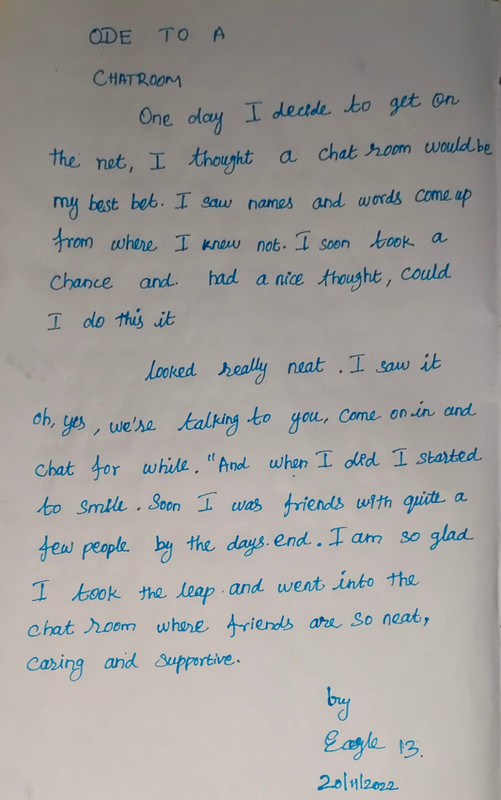 ODE TO A
CHATROOM
One day I decide to get on
the net, I thought a chat room would be
my best bet. I saw names and words come up
from where I knew not. I soon took a
chance and. had a nice thought, could
I do this it
looked really neat. I saw it
oh, yes, we're talking to you, come on in and
chat for while. "And when I did I started
to smile. Soon I was friends with quite a
few people by the days. end. I am so glad
I took the leap and went into the
chat room where friends are so neat,
caring and supportive.
by
Eagle 13.
20/11/2022